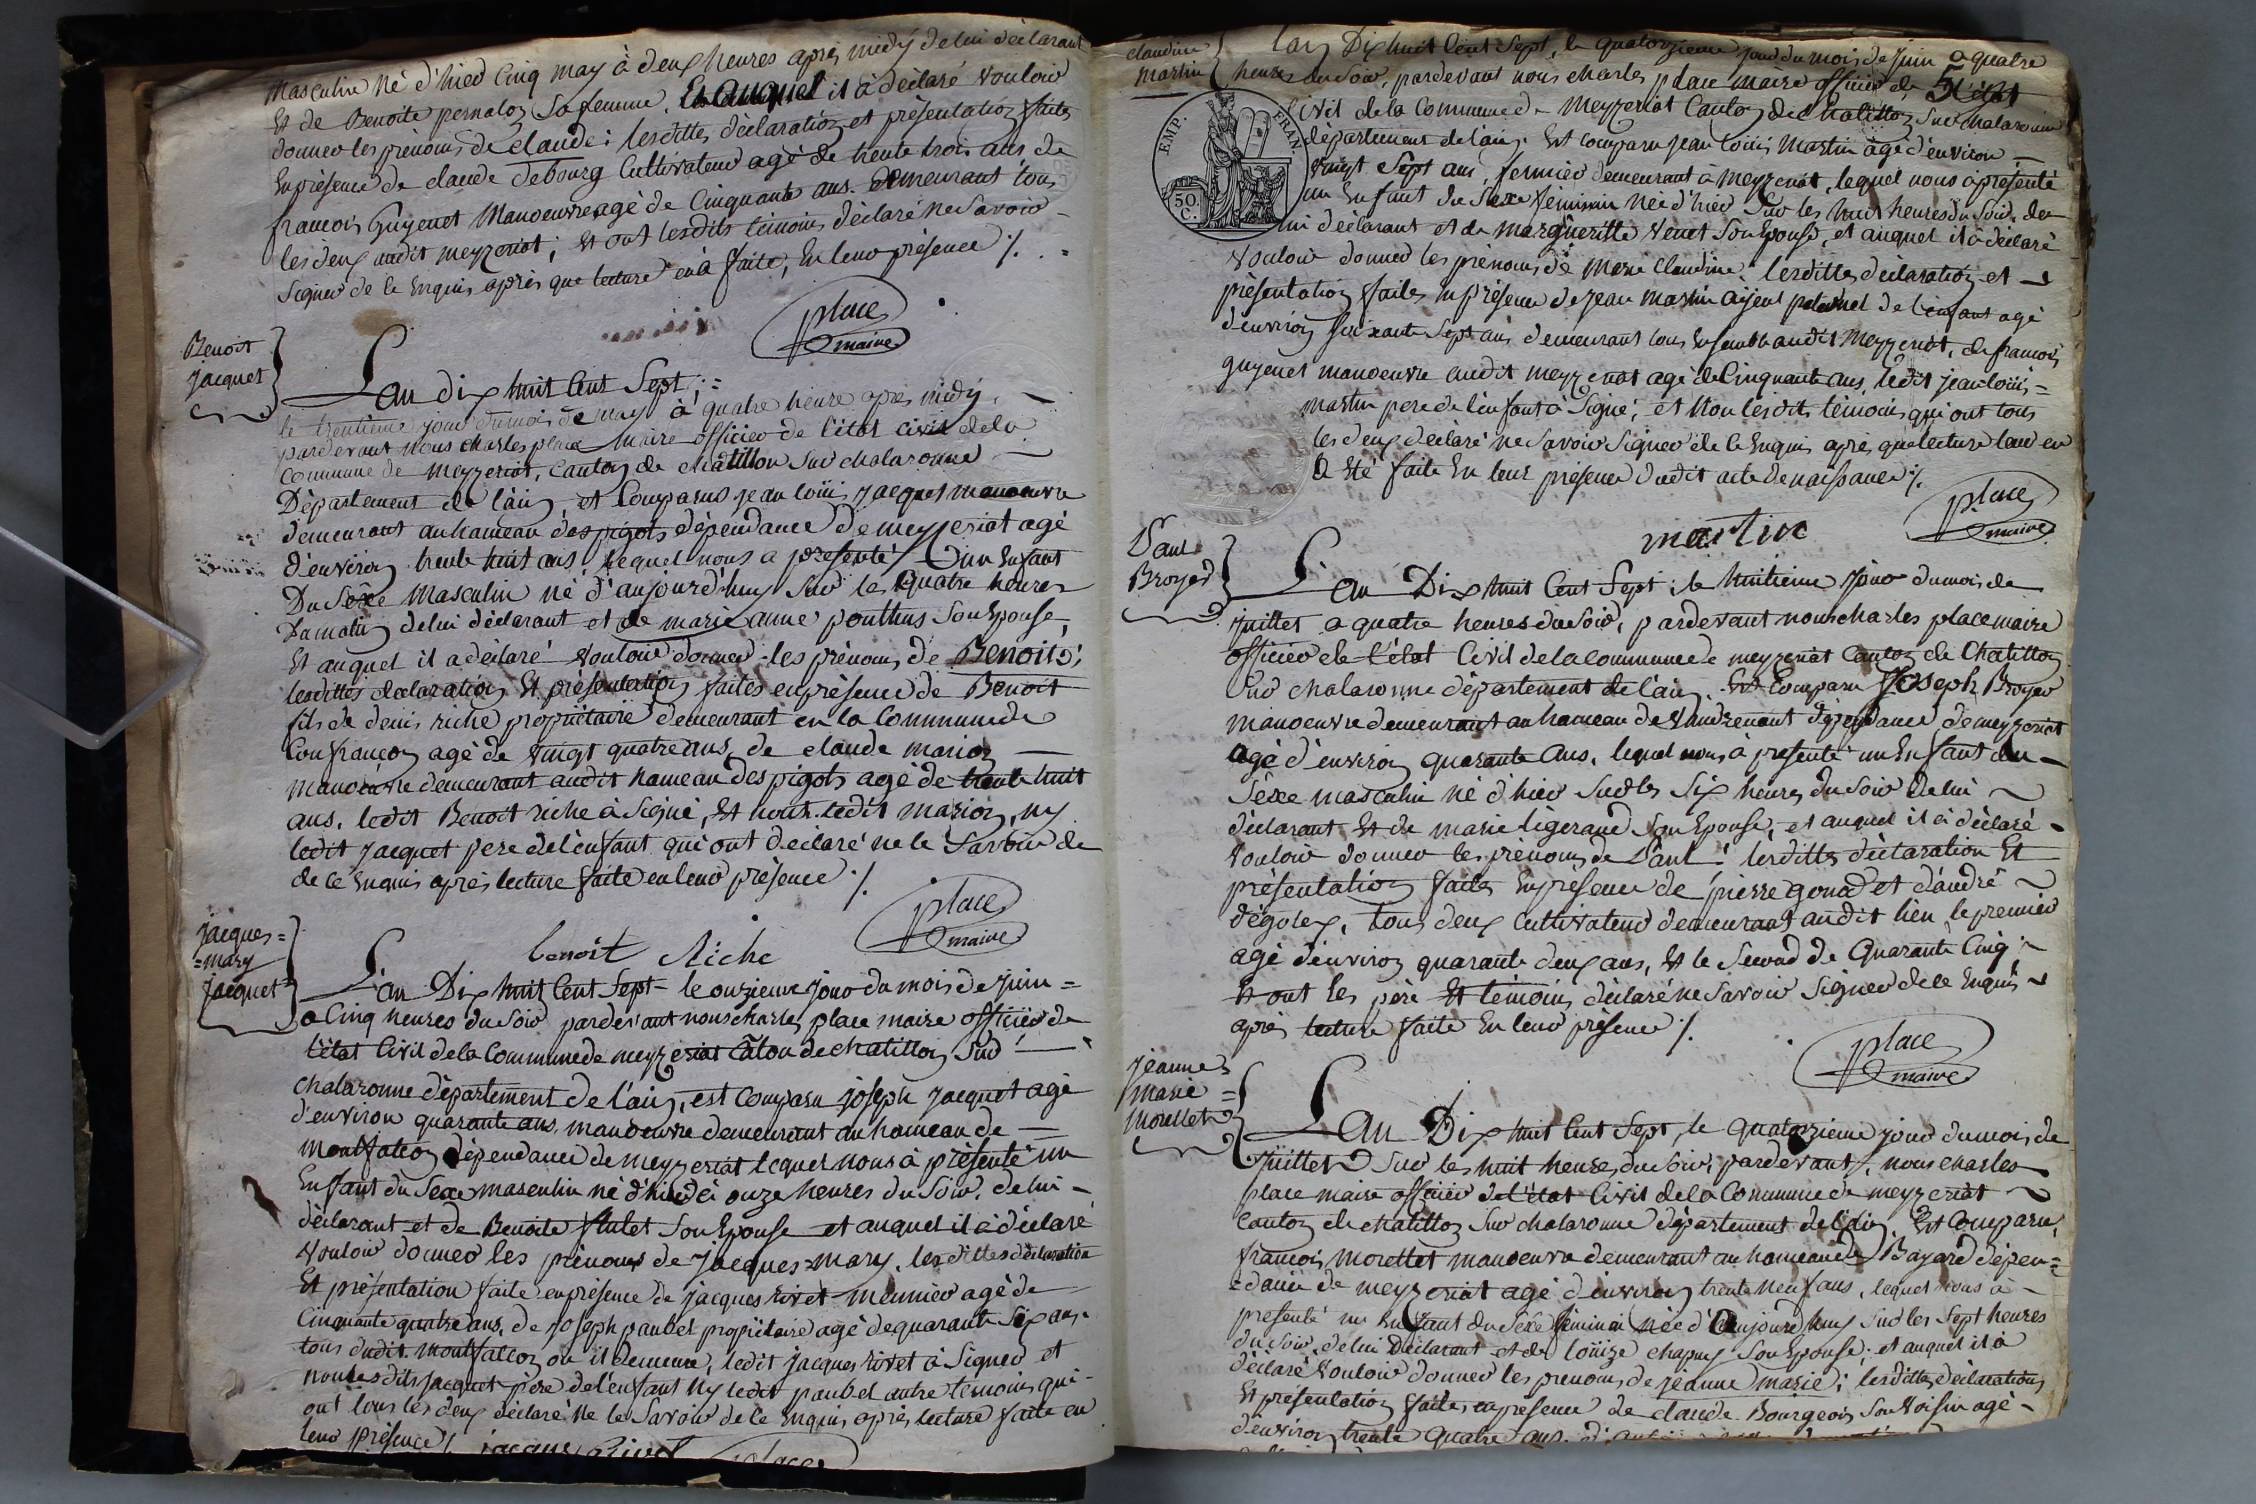 masculin né d'hied Cinq may à deux heures après midy de lui déclarant
Et de Benoite pernaloz Sa femme. Et auquel il à déclaré vouloir
donner les prénoms de claude; lesdittes déclaration et présentation faites
En présence de claude Debourg Cultivateur agé de trente trois ans de
francois Guyenet Manoeuvre agé de Cinquante ans. demeurant tous
les deux audit meyzeriat; Et ont lesdits témoins déclaré ne Savoir
Signer de ce Enquis après que lecture en à faite, En leur présence ./.
place
maire
Benoit
jacquet
L'an dix huit Cent Sept;
le trentieme jour du mois de may à quatre heure après midy,
pardevant nous charles place maire officier de l'état civil de la
Commune de meyzeriat, canton de chatillon Sur chalaronne
Département de l'ain, et Comparus jean louis jacquet manoeuvre
demeurant au hameau des pigots dépendance de meyzeriat agé
d'environ trente huit ans, lequel nous a présenté un Enfant
Du Sexe Masculin né d'aujourd'huy Sur les quatre heures
Du matin de lui déclarant et de marie anne pouthus Son Epouse,
Et auquel il a déclaré vouloir donner les prénoms de Benoit;
lesdittes declaration Et présentation faites en présence de Benoit
fils de denis riche propriétaire demeurant en la Commune de
Confrançon agé de vingt quatre ans, de claude marion
manoeuvre demeurant audit hameau des pigots agé de trente huit
ans. ledit Benoit riche à Signé, Et non ledit marion, ny
ledit jacquet pere de l'enfant qui ont declaré ne le Savoir de
de ce Enquis après lecture faite en leur présence ./.
place
maire
benoit Riche
jacques=
=mary
jacquet
L'an Dix huit Cent Sept le onzieme jour du mois de juin
a Cinq heures du Soir pardevant nous charles place maire officier de
l'état Civil de la Commune de meyzeriat Caton de chatillon Sur
chalaronne département de l'ain, est Comparu joseph jacquet agé
d'environ quarante ans, manoeuvre demeurant au hameau de
montfalcon dépendance de meyzeriat lequel nous à présenté un
Enfant du Sexe masculin né d'hier à onze heures du Soir, de lui
déclarant et de Benoite Son Epouse et auquel il à déclaré
vouloir donner les prénoms de jacques=mary, lesdittes déclaration
Et présentation faite en présence de jacques rivet meunier agé de
Cinquante quatre ans, de joseph paubel propriétaire agé de quarante Six ans,
tous dudit montfalcon ou il demeure, ledit jacques rivet à Signer et
non lesdits jacquet père de l'enfant Ny ledit paubel autre témoins qui
ont tous les deux déclaré ne le Savoir de ce Enquis après lecture faite en
leur présence ./. jacque Rivet place
claudine
martin
l'an Dix huit Cent Sept, le quatorzieme jour du mois de juin a quatre
heures du Soir, pardevant nous charles place maire officier de l'état
5
EMP. FRAN.
50 C.
Civil de la Commune de Meyzeriat Canton de chatillon Sur chalaronne
département de l'ain; Est comparu jean louis Martin agé d'environ
vingt Sept ans, fermier demeurant à meyzeriat, lequel nous à présenté
un Enfant du Sexe féminin née d'hier Sur les huit heures du Soir, de
lui déclarant et de margueritte venet Son Epouse, et auquel il à déclaré
vouloir donner les prénoms de Marie Claudine; lesdittes déclaration et
présentation faites en présence de jean martin aÿeul paternel de l'enfant agé
d'environ Soixante Sept ans demeurant tous Ensemble audit Meyzeriat, de francois
guyenet manoeuvre audit meyzeriat agé de Cinquante ans, ledit jean louis
martin pere de l'enfant à Signé; et Non lesdits témoins qui ont tous
les deux déclaré ne Savoir Signer de ce Enquis après que lecture leur en
a Eté faite En leur présence dudit acte de naissance ./.
place
maire
martin
Paul
Broyer
L'an Dix huit Cent Sept; le huitieme jour du mois de
juillet a quatre heures du Soir, pardevant nous charles place maire
officier de l'état Civil de la commune de meyzeriat Canton de Chatillon
Sur chalaronne département de l'ain, Est Comparu Joseph Broyer
manoeuvre demeurant au hameau de vandrenant dépendance de meyzeriat
agé d'environ quarante ans, lequel nous à présenté un Enfant du
Séxe masculin né d'hier Sur les Six heures du Soir de lui
déclarant Et de marie ligeraud Son Epouse, et auquel il à déclaré
vouloir donner les prénoms de Paul; lesdittes déclaration Et
présentation faites En présence de pierre gonod et d'andré
dégoley, tous deux Cultivateur demeurant audit lieu, le premier
agé d'environ quarante deux ans, Et le Second de Quarante Cinq;
Et ont les père Et témoins déclaré ne Savoir Signer de ce Enquis
après lecture faite En leur présence ./.
place
maire
jeanne
marie
morellet
L'An Dix huit Cent Sept, le quatorzieme jour du mois de
juillet Sur les huit heures du Soir, pardevant nous charles
place maire officier de l'état Civil de la Commune de meyzeriat
Canton de chatillon Sur chalaronne département de l'ain, Est Comparu,
francois Morellet manoeuvre demeurant au hameau de Bayard dépen=
=dance de meyzeriat agé d'environ trente neuf ans, lequel nous à
presenté un Enfant du Sexe féminin née d'Aujourd'huy Sur les Sept heures
du Soir, de lui Déclarant et de louize chapuy Son Epouse; et auquel il à
déclaré vouloir donner les prenoms de jeanne marie; lesdittes déclarations
Et présentation faites en présence de claude Bourgeois Son voisin agé
d'environ trente quatre ans